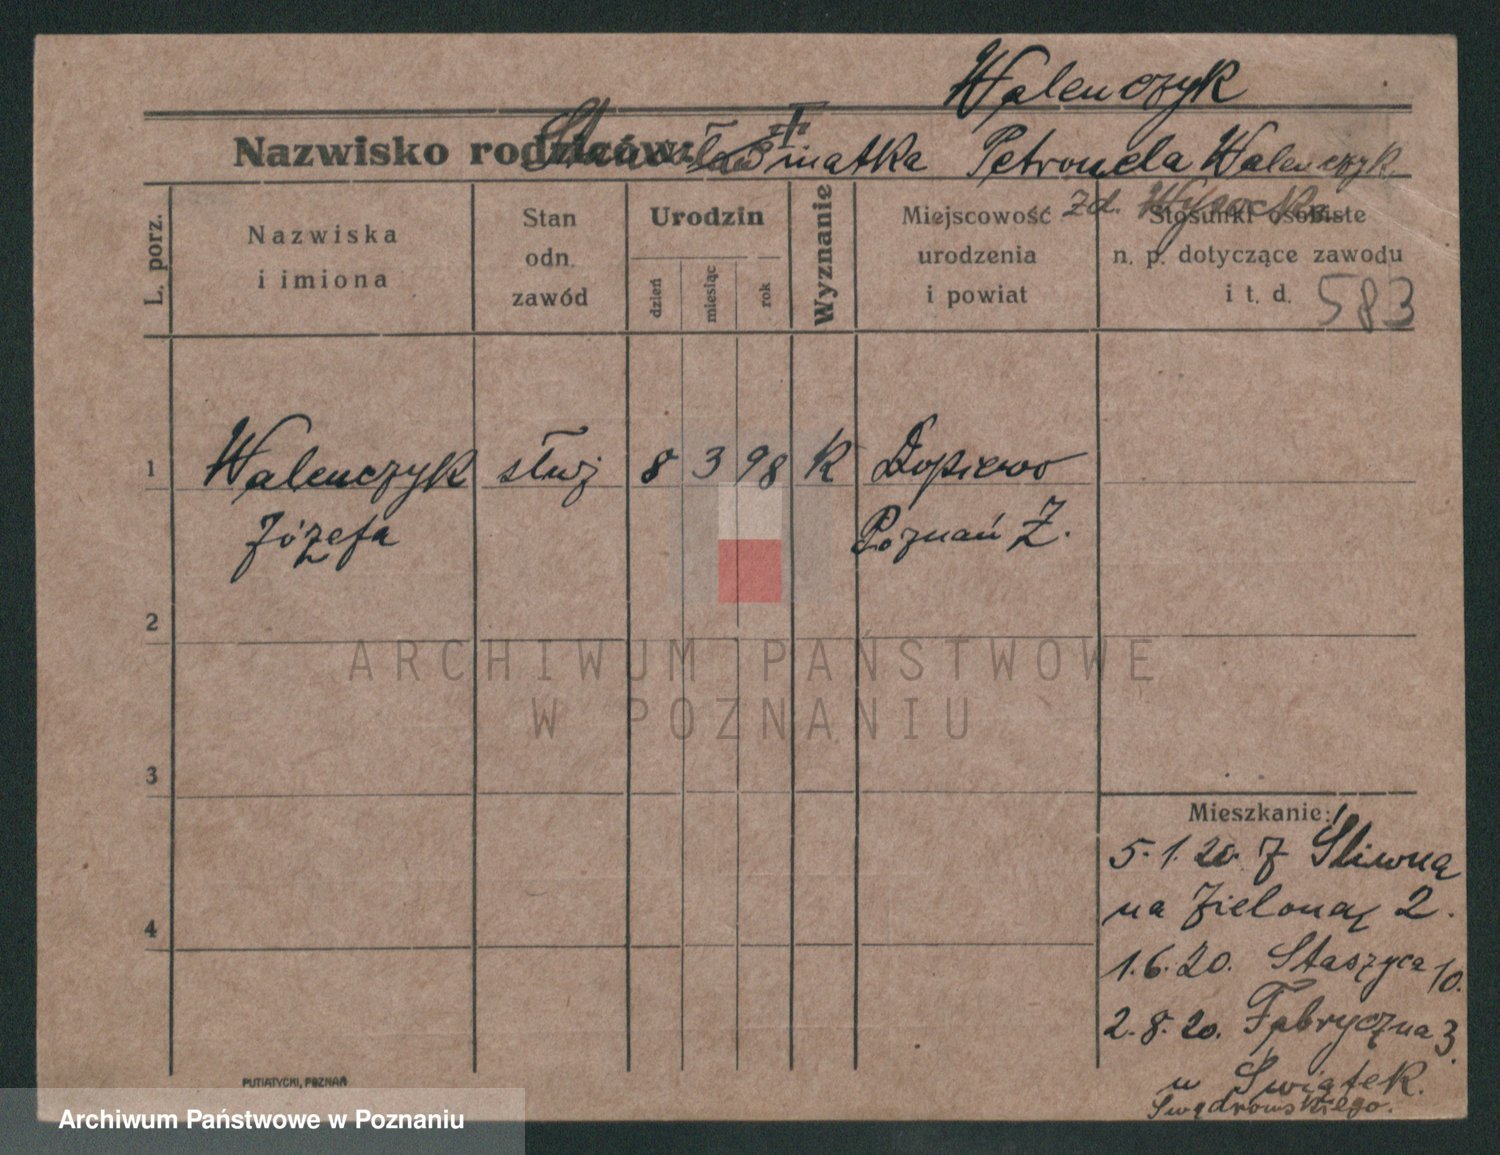 Walenczyk
Nazwisko rodziców: Stanisław † matka Petronela Walenczyk
zd. Wysocka
L. porz.
Nazwiska
i imiona
Stan
odn.
zawód
Urodzin
dzień
miesiąc
rok
Wyznanie
Miejscowość
urodzenia
i powiat
Stosunki osobiste
n. p. dotyczące zawodu
i t. d.
583
1 Walenczyk służ 8 3 98 K Dopiewo
Józefa Poznań Z.
2
ARCHIWUM PAŃSTWOWE
W POZNANIU
3
Mieszkanie:
5.1.20. z Śliwną
na Zieloną 2.
4
1.6.20. Staszyca 10.
2.8.20. Fabryczna 3.
u Świątek.
PUTIATYCKI, POZNAŃ
Archiwum Państwowe w Poznaniu